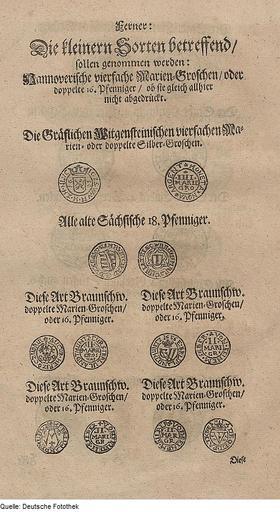 Ferner:
Die kleinern Sorten betreffend/
sollen genommen werden:
Hannoverische vierfache Marien-Groschen/ oder
doppelte 16. Pfenniger/ ob sie gleich allhier
nicht abgedrückt.
Die Gräflichen Witgensteinischen vierfachen Ma-
rien- oder doppelte Silber-Groschen.
IIII
MARIE
GRO
Alle alte Sächsische 18. Pfenniger.
Diese Art Braunschw.
doppelte Marien-Groschen/
oder 16. Pfenniger.
Diese Art Braunschw.
doppelte Marien-Groschen/
oder 16. Pfenniger.
II
MARI
GR
Diese Art Braunschw.
doppelte Marien-Groschen/
oder 16. Pfenniger.
Diese Art Braunschw.
doppelte Marien-Groschen/
oder 16. Pfenniger.
II
MARI
GR
II
MARI
GR
Diese
Quelle: Deutsche Fotothek